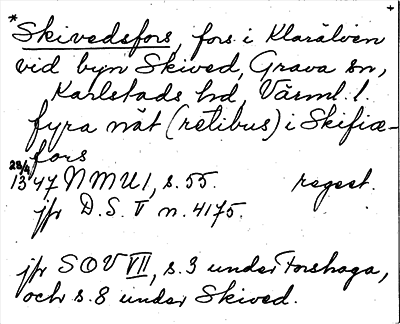 *Skivedsfors, fors i Klarälven
vid byn Skived, Grava sn,
Karlstads hd, Värml. l.
fyra nät (retibus) i Skifiæ-
fors
28/4 1347 NMU 1, s. 55. regest.
jfr D.S. V n. 4175.
jfr SOV VII, s. 3 under Forshaga,
och s. 8 under Skived.